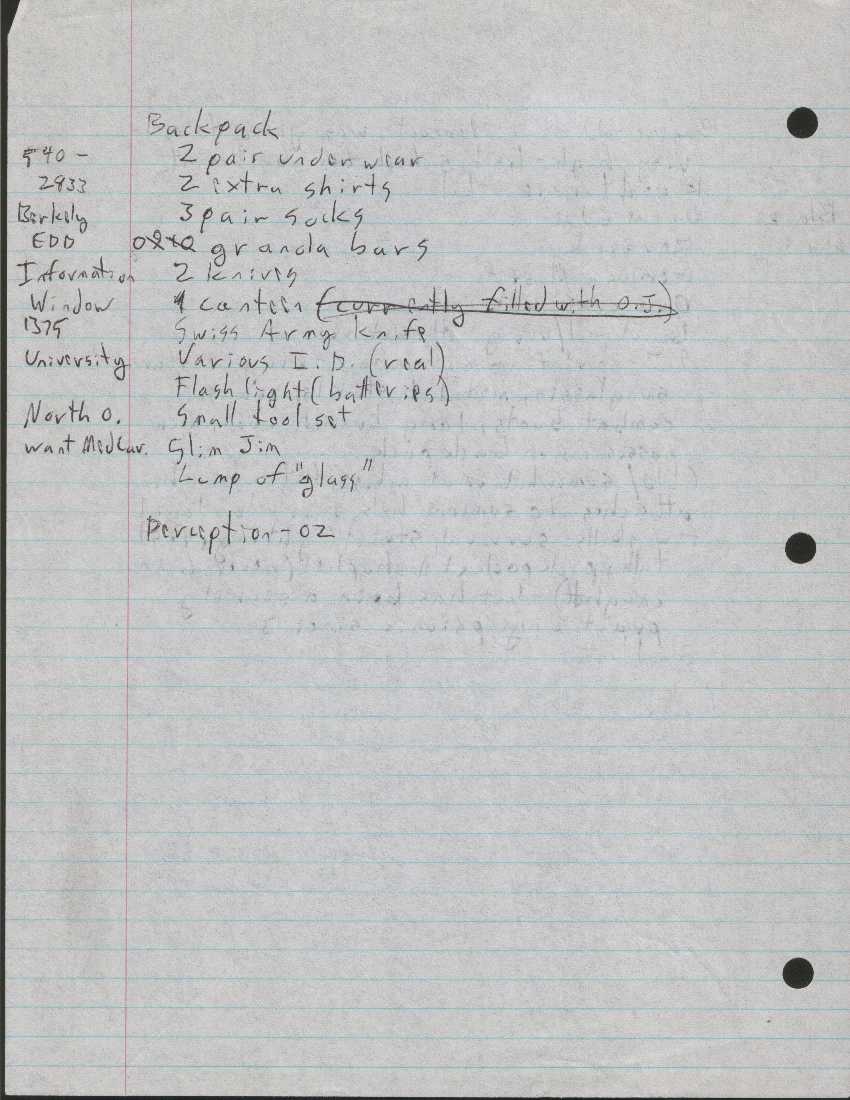 Backpack
540-
2933
Berkely
EDD
Information
Window
1375
University
North O.
want MedCar.
2 pair underwear
2 extra shirts
3 pair socks
granola bars
2 knives
1 canteen (currently filled with O.J.)
Swiss Army knife
Various I.D. (real)
Flash light (batteries)
Small tool set
Slim Jim
Lump of "glass"
Perception - 02